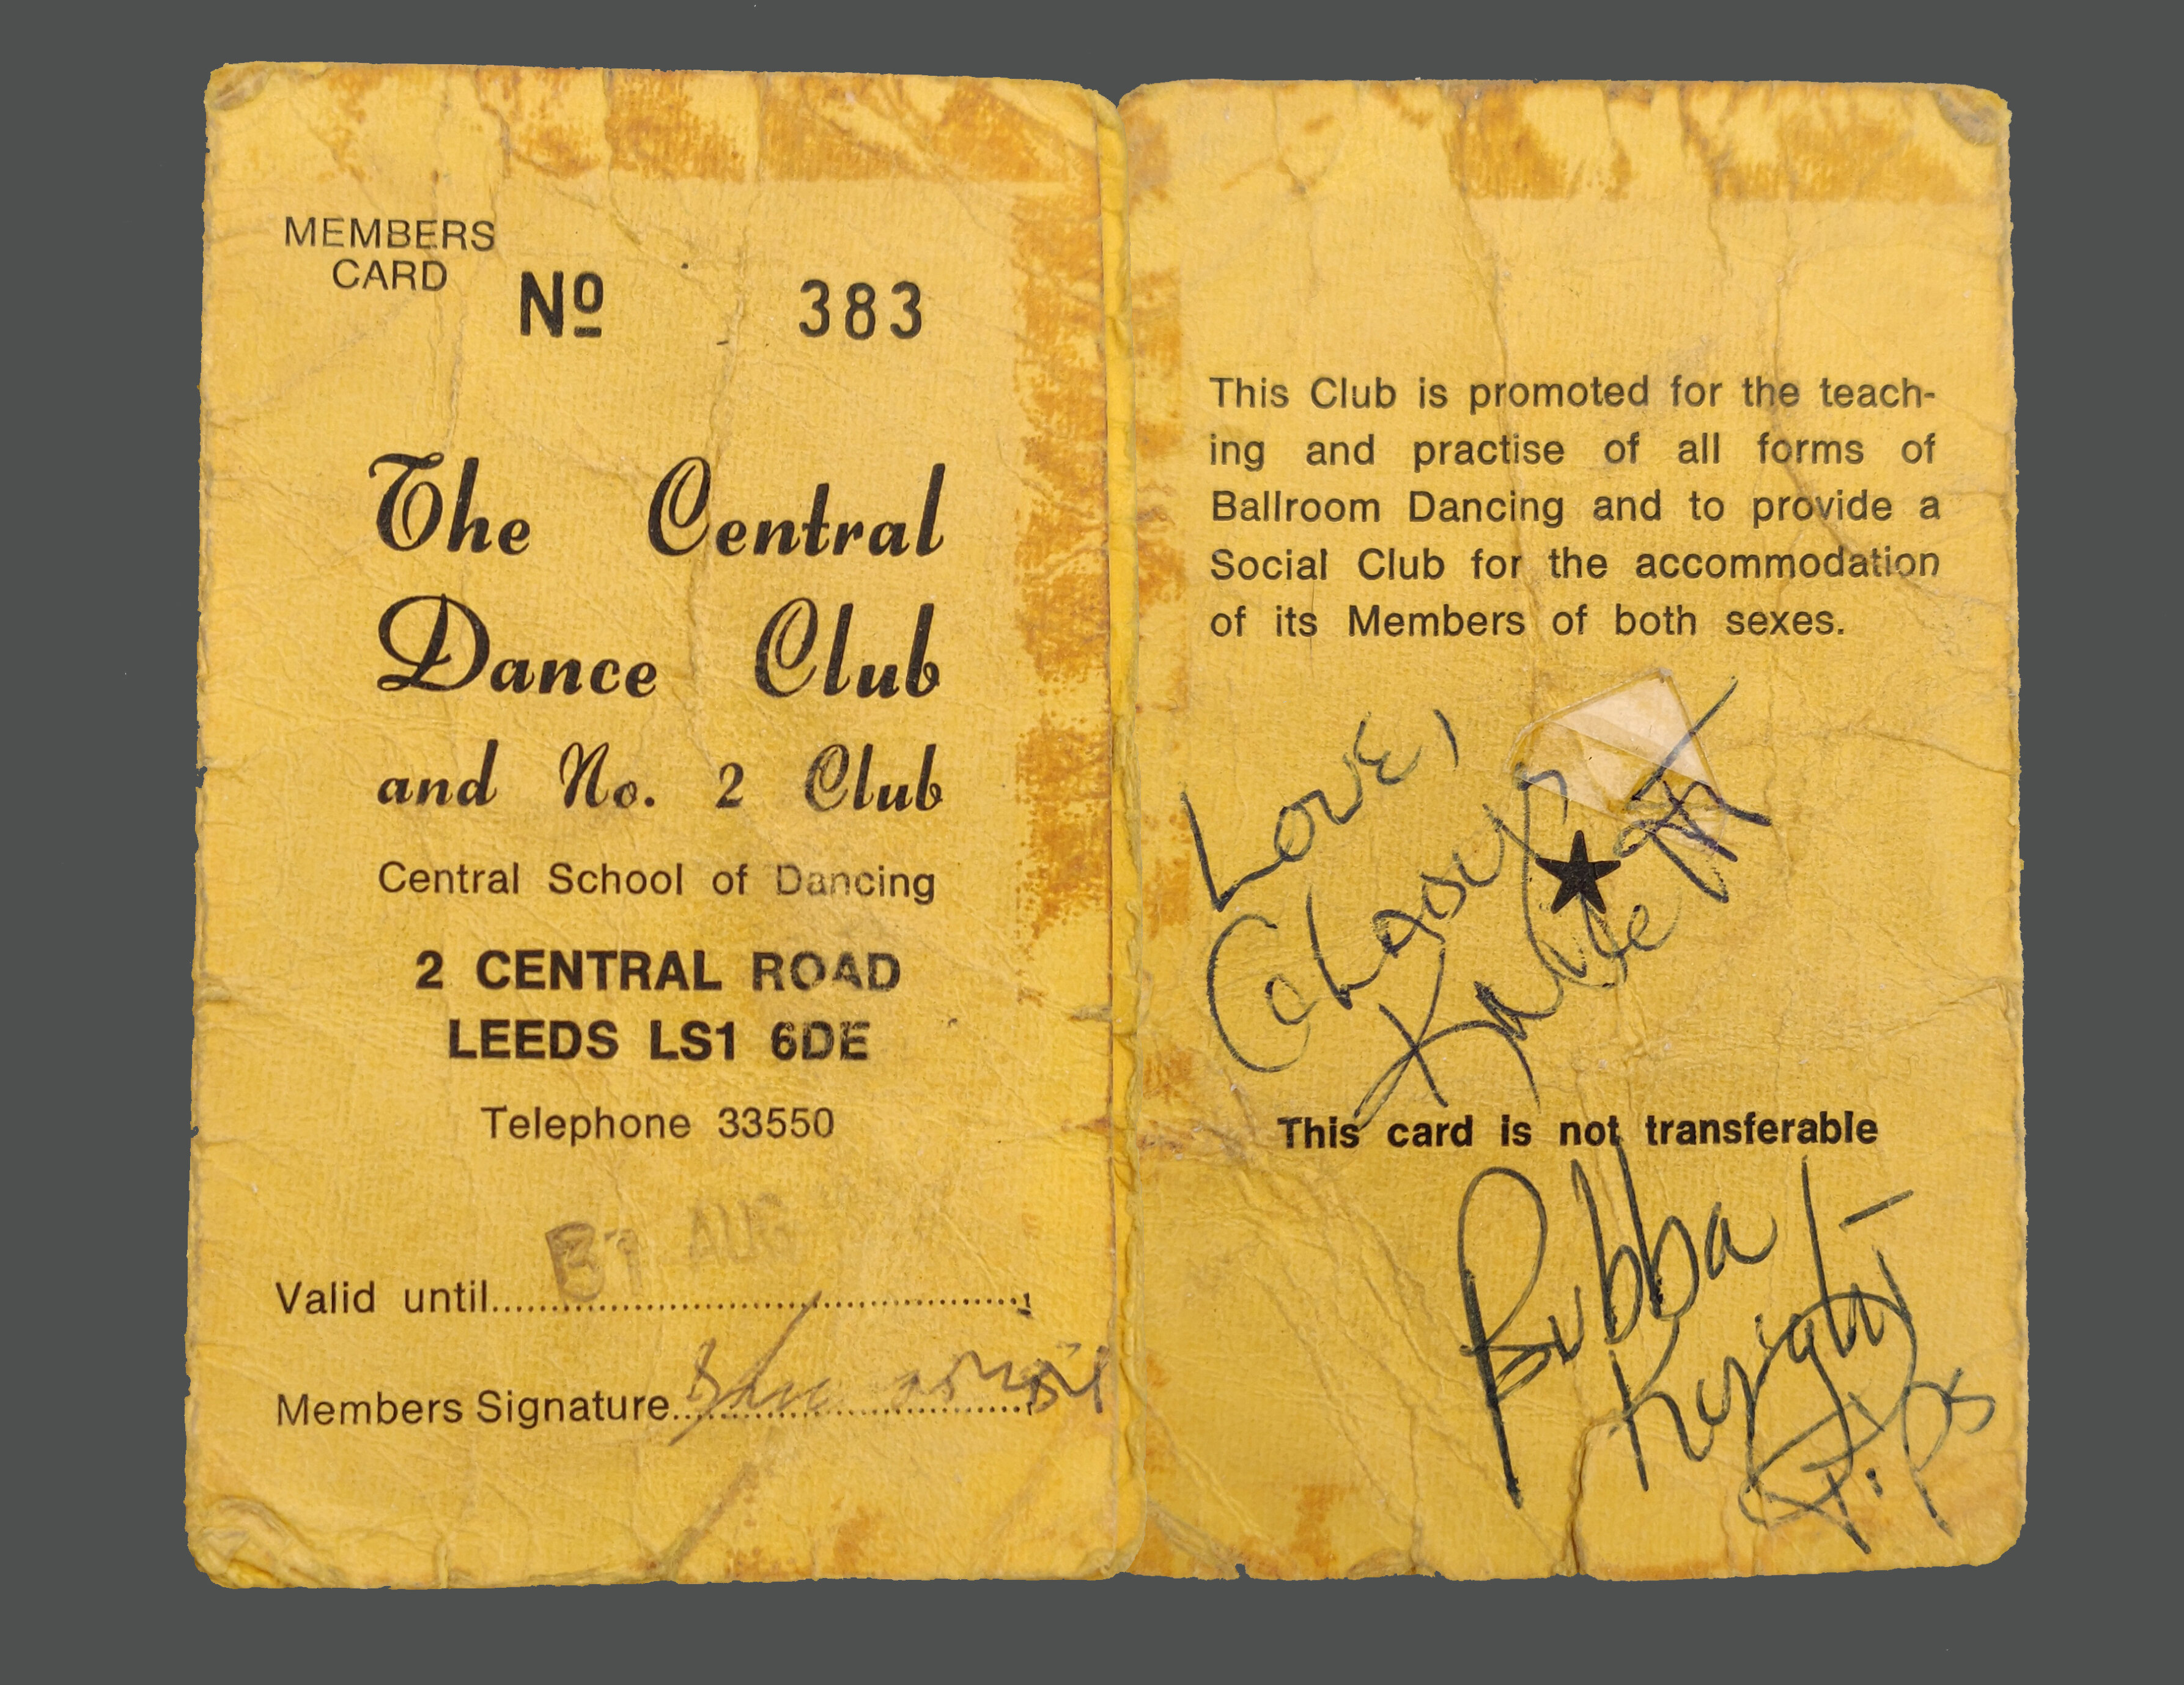 MEMBERS
CARD
Nº 383
The Central
Dance Club
and No. 2 Club
Central School of Dancing
2 CENTRAL ROAD
LEEDS LS1 6DE
Telephone 33550
31 AUG
Valid until
Members Signature
This Club is promoted for the teach-
ing and practise of all forms of
Ballroom Dancing and to provide a
Social Club for the accommodation
of its Members of both sexes.
Love,
This card is not transferable
Bubba
Knight
Pips